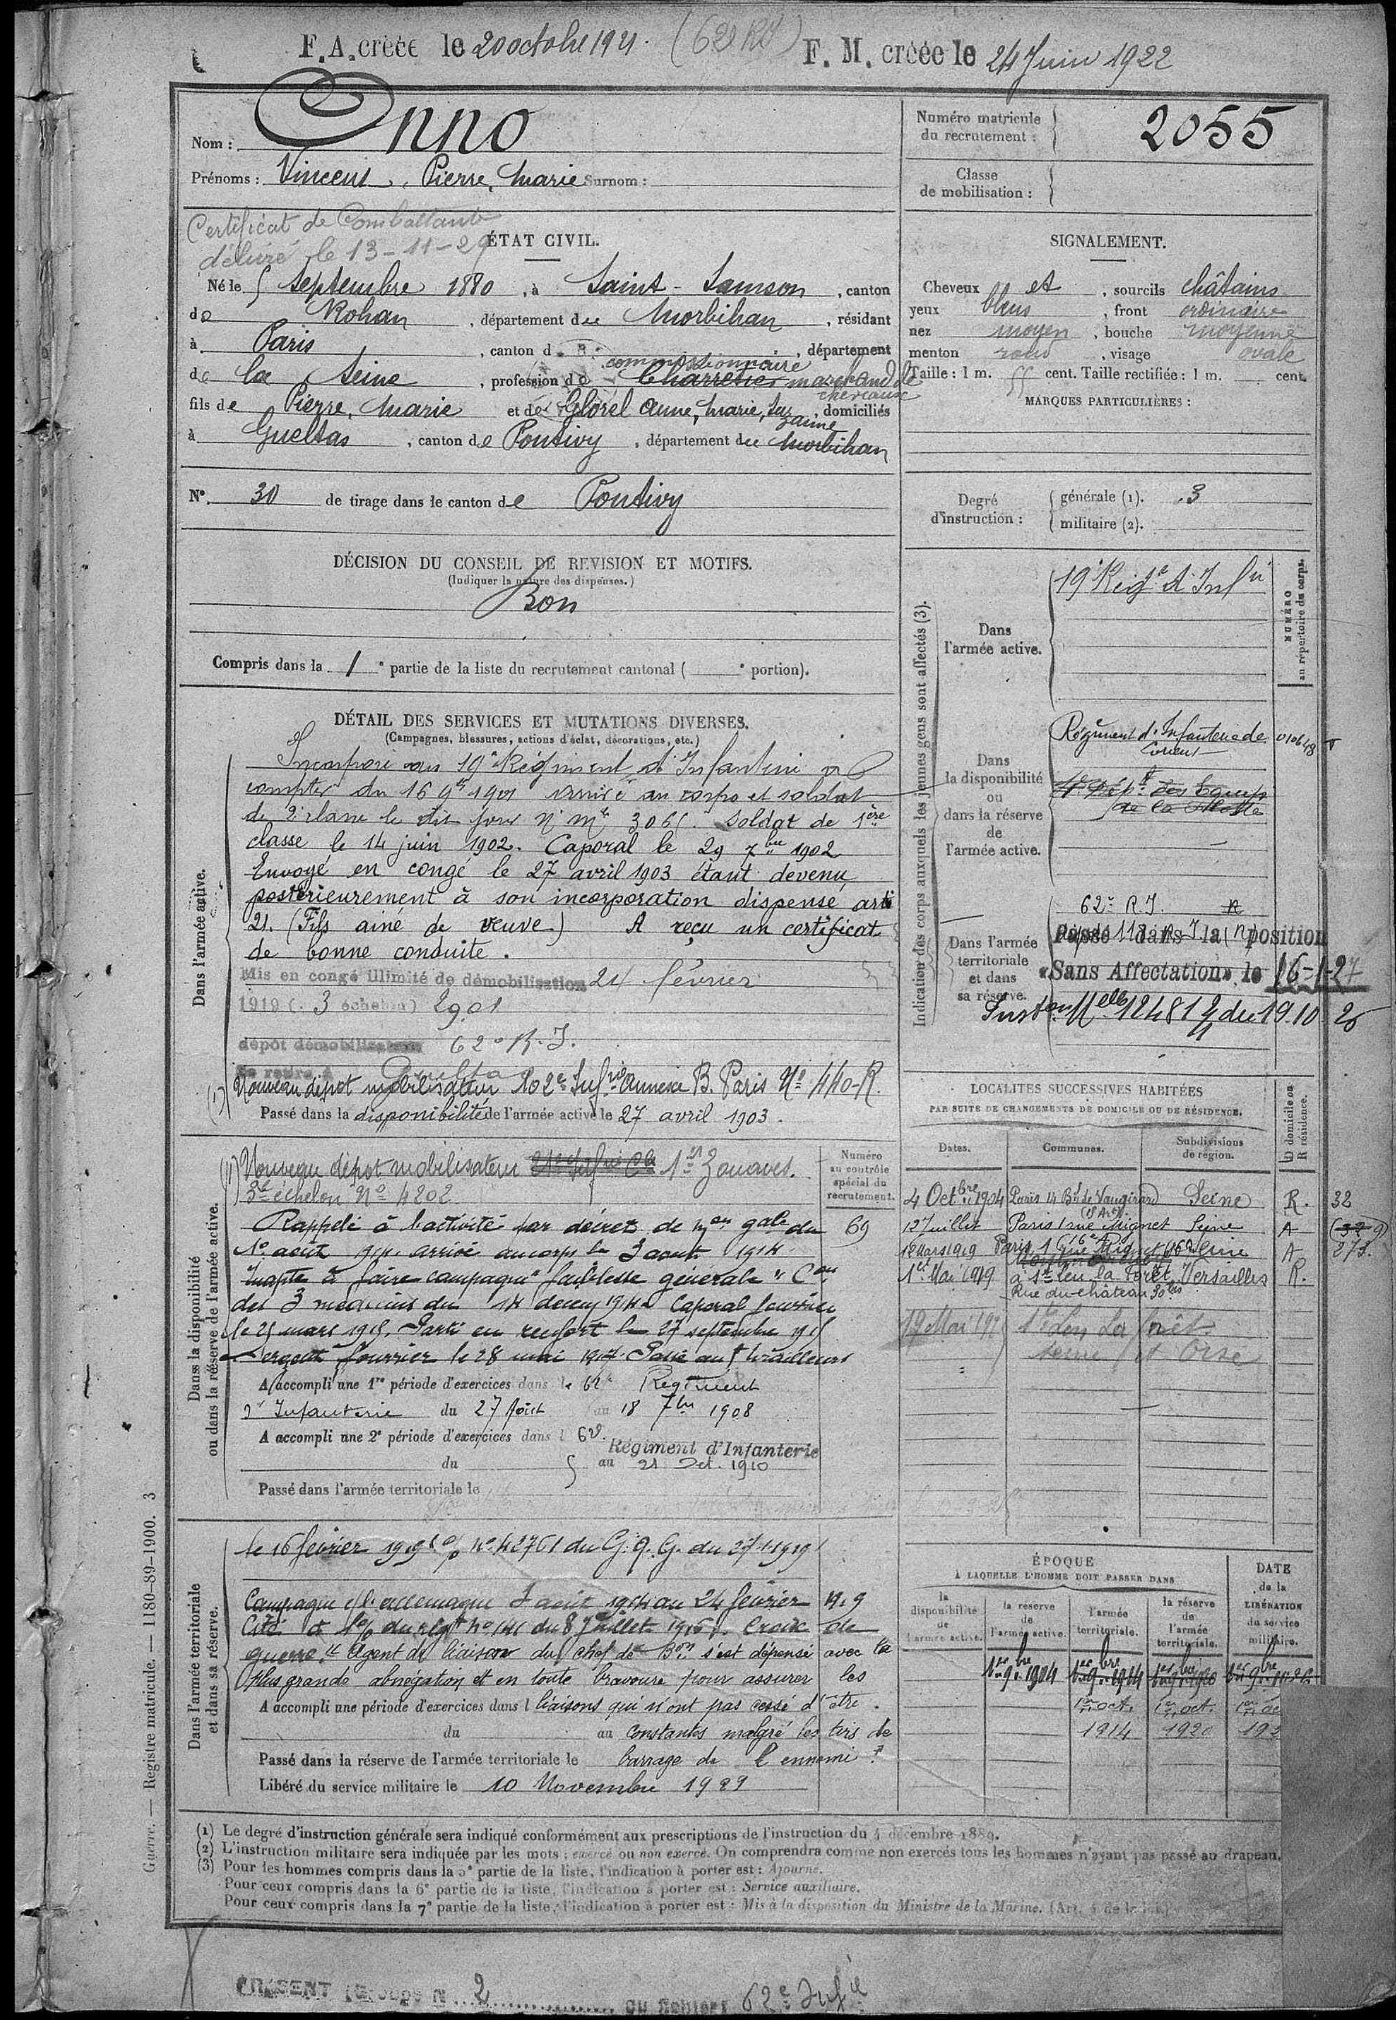 F. A. créée le 20 octobre 1921. (62e RI) F. M. créée le 24 Juin 1922
Nom : Onno
Prénoms : Vincent, Pierre, Marie Surnom :
Numéro matricule du recrutement : 2055
Classe de mobilisation :
Certificat de Combattant
délivré le 13-11-29
ÉTAT CIVIL.
Né le 5 Septembre 1880, à Saint-Samson, canton
de Rohan, département du Morbihan, résidant
à Paris, canton d , département
commissionnaire
de la Seine, profession de Charretier marchand de
chevaux
fils de Pierre, Marie et de Glorel Anne, Marie, Su
zanne, domiciliés
à Gueltas, canton de Pontivy, département du Morbihan
N° 30 de tirage dans le canton de Pontivy
SIGNALEMENT.
Cheveux et , sourcils châtains
yeux bleus, front ordinaire
nez moyen, bouche moyenne
menton rond, visage ovale
Taille : 1 m. 55 cent. Taille rectifiée : 1 m. cent.
MARQUES PARTICULIÈRES :
Degré d'instruction : générale (1). 3
militaire (2).
DÉCISION DU CONSEIL DE REVISION ET MOTIFS.
(Indiquer la nature des dispenses.)
Bon
Compris dans la 1e partie de la liste du recrutement cantonal ( e portion).
Indication des corps auxquels les jeunes gens sont affectés (3).
NUMÉRO au répertoire du corps.
Dans l'armée active. 19e Régt d'Infie
Dans la disponibilité ou dans la réserve de l'armée active.
Régiment d'Infanterie de
01048
Dans l'armée territoriale et dans sa réserve.
62e R.I.
Passé dans la position
« Sans Affectation », le 16-1-27
12481 du 19.10.26
DÉTAIL DES SERVICES ET MUTATIONS DIVERSES.
(Campagnes, blessures, actions d'éclat, décorations, etc.)
Dans l'armée active.
Incorporé au 19e Régiment d'Infanterie à
compter du 16 9bre 1901 arrivé au corps et soldat
de 2e classe le dit jour N° Mle 3065. Soldat de 1ère
classe le 14 juin 1902. Caporal le 29 7bre 1902
Envoyé en congé le 27 avril 1903 étant devenu
postérieurement à son incorporation dispensé art
21. (Fils ainé de veuve) A reçu un certificat
de bonne conduite.
Mis en congé illimité de démobilisation 24 février
1919 ( 3 échelon) 2901
dépôt démobilisateur 62e R.I.
se retire à Gueltas
(1) Nouveau dépôt mobilisateur 102e Infrie Annexe B. Paris N° 440-R.
Passé dans la disponibilité de l'armée active le 27 avril 1903.
Dans la disponibilité ou dans la réserve de l'armée active.
Numéro au contrôle spécial du recrutement.
69
(1) Nouveau dépôt mobilisateur 1er Zouaves.
3e échelon N° 4202
Rappelé à l'activité par décret de mon gale du
1er aout 1914 arrivé au corps le 3 aout 1914.
Inapte à faire campagne "faiblesse générale" Con
des 3 médecins du 14 décem 1914 Caporal fourrier
le 25 mars 1915. Parti en renfort le 27 septembre 1915
Sergent fourrier le 28 mai 1917. Passé au tirailleurs
A accompli une 1re période d'exercices dans le 62e Régiment
d'Infanterie du 27 Août au 18 7bre 1908
A accompli une 2e période d'exercices dans l 62e Régiment d'Infanterie
du 5 au 21 Oct. 1910
Passé dans l'armée territoriale le
LOCALITÉS SUCCESSIVES HABITÉES
PAR SUITE DE CHANGEMENTS DE DOMICILE OU DE RÉSIDENCE.
Dates. Communes. Subdivisions de région. D domicile ou R résidence.
4 Octbre 1904 Paris 14 Bd de Vaugirard Seine R. 32
(15 Art)
12 Juillet Paris 1 rue Mignet Seine A
18 Mars 1919 Paris 1 rue Mignet 16e Seine A 273.
1er Mai 1919 à St Leu la Forêt Versailles R.
Rue du château 30 bis
19 Mai St Leu La forêt
Seine et Oise
Dans l'armée territoriale et dans sa réserve.
le 16 février 1919 N° 42761 du G.Q.G. du 27-1-1919
Campagne c/ l'Allemagne 3 août 1914 au 24 février 1919
Cité à l'o/ du régt n° 141 du 8 Juillet 1916. Croix de
guerre. "Agent de liaison du chef de Bon s'est dépensé avec la
plus grande abnégation et en toute bravoure pour assurer les
A accompli une période d'exercices dans l liaisons qui n'ont pas cessé d'être
du au constantes malgré les tirs de
Passé dans la réserve de l'armée territoriale le barrage de l'ennemi."
Libéré du service militaire le 10 Novembre 1929
ÉPOQUE
À LAQUELLE L'HOMME DOIT PASSER DANS
DATE de la LIBÉRATION du service militaire.
la disponibilité de l'armée active. la réserve de l'armée active. l'armée territoriale. la réserve de l'armée territoriale.
1er 9bre 1904 1er 9bre 1914 1er 9bre 1920 1er 9bre 1926
1er oct. 1er oct. 1er oc
1914 1920 192
(1) Le degré d'instruction générale sera indiqué conformément aux prescriptions de l'instruction du 4 décembre 1889.
(2) L'instruction militaire sera indiquée par les mots : exercé ou non exercé. On comprendra comme non exercés tous les hommes n'ayant pas passé au drapeau.
(3) Pour les hommes compris dans la 5e partie de la liste, l'indication à porter est : Ajourné.
Pour ceux compris dans la 6e partie de la liste, l'indication à porter est : Service auxiliaire.
Pour ceux compris dans la 7e partie de la liste, l'indication à porter est : Mis à la disposition du Ministre de la Marine. (Art. 4 de la loi.)
Guerre. — Registre matricule. — 1180-89-1900. 3
PRÉSENT N 2 du fichier 62e Infie